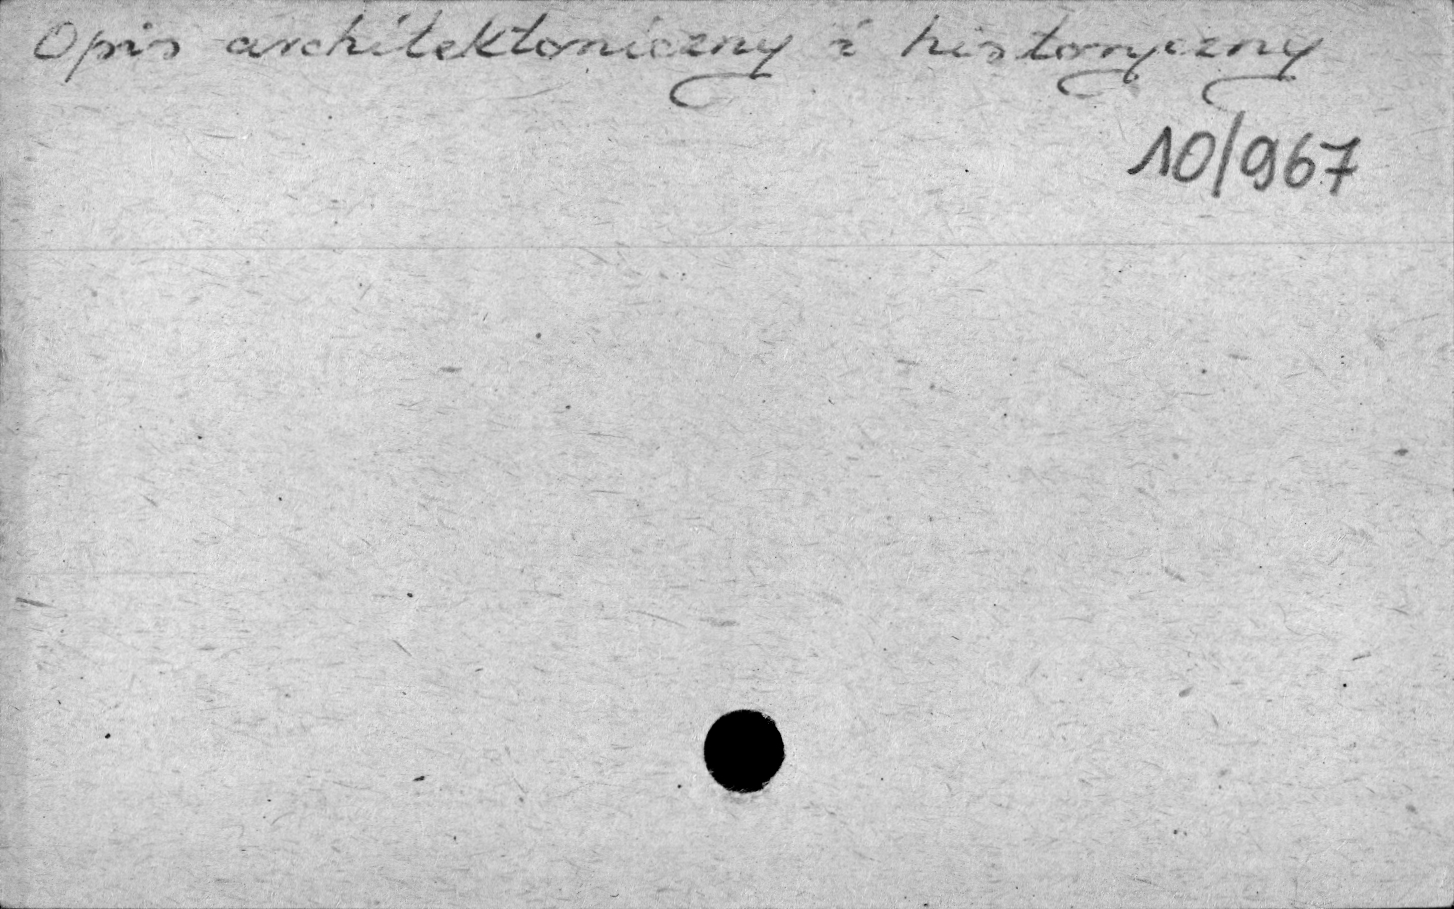 Opis architektoniczny i historyczny
10/967